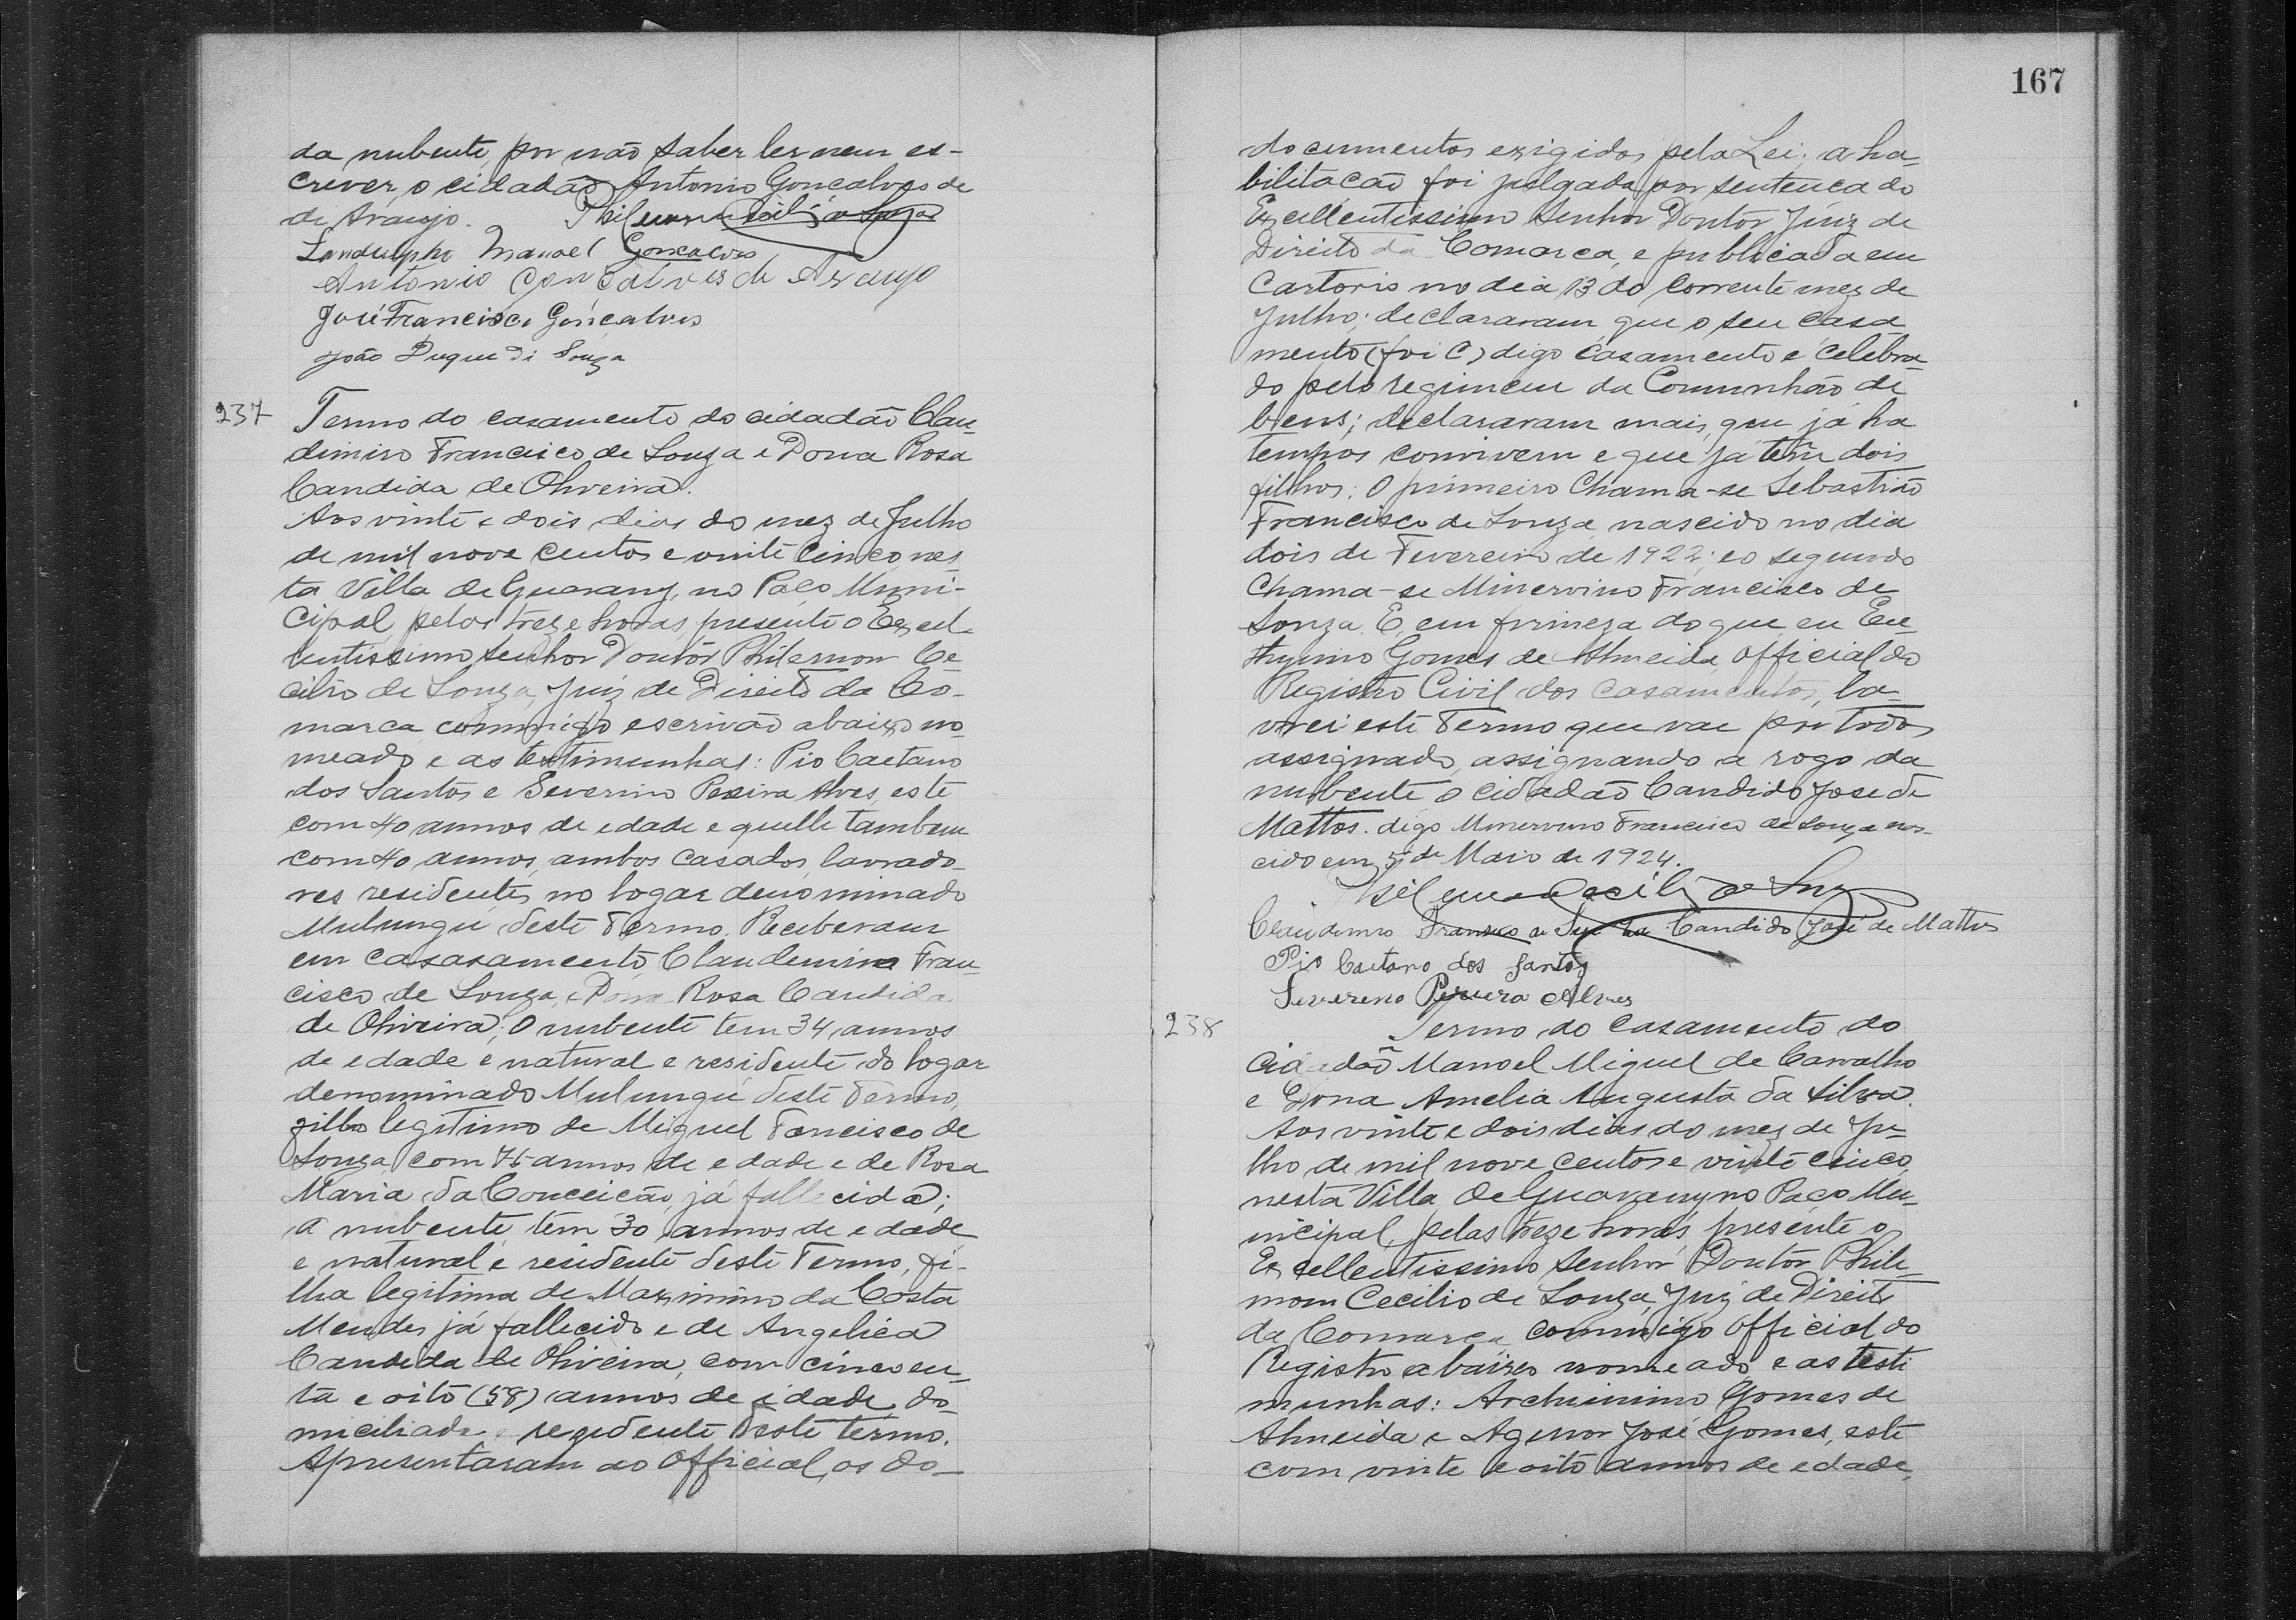 da nubente, por não saber ler nem es-
crever, o cidadão Antonio Goncalves de
de Araujo. Philemon
Landulpho Manoel Goncalves
Antonio Goncalves de Araujo
José Francisco Gonçalves
João Duque di Souza
237 Termo do casamento do cidadão Clau-
dimiro Francisco de Souza e Dona Rosa
Candida de Oliveira.
Aos vinte e dois dias do mez de Julho
de mil nove centos e vinte cinco, nes-
ta Villa de Guarany, no Paço Muni-
cipal, pelas treze horas, presente o Excel-
lentissimo Senhor Doutor Philemon Ce-
cilio de Souza, Juiz de Direito da Co-
marca commigo escrivão abaixo no-
meado e as testimunhas: Pio Caetano
dos Santos e Severino Pereira Alves, este
com 40 annos de edade e quelle tambem
com 40 annos, ambos casados, lavrado-
res residentes no logar denominado
Mulungú deste Termo. Receberam
em casasamento Claudemiro Fran-
cisco de Souza, e Dona Rosa Candida
de Oliveira; O nubente tem 34 annos
de edade e natural e residente do logar
denominado Mulungú deste Termo,
filho legitimo de Miguel Fancisco de
Souza, com 75 annos de edade e de Rosa
Maria da Conceicão, já fallecida;
a nubente, tem 30 annos de edade
e natural e residente deste Termo, fi-
lha legitima de Maximino da Costa
Mendes já fallecido e de Angelica
Candida de Oliveira, com cincoen-
ta e oito (58) annos de edade, do-
miciliada e rezedente deste termo.
Apresentaram ao Official, os do-
167
documentos exigidos pela Lei; a ha-
bilitacão foi julgada por sentenca do
Excellentissimo Senhor Doutor Juiz de
Direito da Comarca, e publicada em
Cartorio no dia 13 do corrente mez de
Julho; declararam que o seu casa
mento (foi C) digo casamento é celebra-
do pelo regimem da Comunhão de
bens; declararam mais, que já ha
tempos convivem e que já têm dois
filhos: O primeiro Chama-se Sebastião
Francisco de Souza, nascido no dia
dois de Fevereiro de 1922; e o segundo
Chama-se Minervino Francisco de
Souza. E, em firmeza do que eu Eu-
thymio Gomes de Almeida, official do
Registro Civil dos casamentos, la-
vrei este Termo que vae por todos
assignado, assignando a rogo da
nubente, o cidadão Candido José de
Mattos. digo Minervino Francisco de Souza nas-
cido em 5 de Maio de 1924.
Philemon Cecilio de Souza
Claudemiro Candido José de Mattos
Pio Caetano dos Santos
Severeno Pereira Alves
238 Termo do casamento do
cidadão Manoel Miguel de Carvalho
e Dona Amelia Augusta da Silva.
Aos vinte e dois dias do mez de Ju-
lho de mil nove centos e vinte cinco,
nesta Villa de Guarany no Paço Mu-
nicipal, pelas treze horas, presente o
Excellentissimo Senhor Doutor Phile-
mom Cecilio de Souza, Juiz de Direito
da Comarca, commigo official do
Registro abaixo nomeado, e as testi
munhas: Archimimo Gomes de
Almeida e Agenor José Gomes, este
com vinte e oito annos de edade,